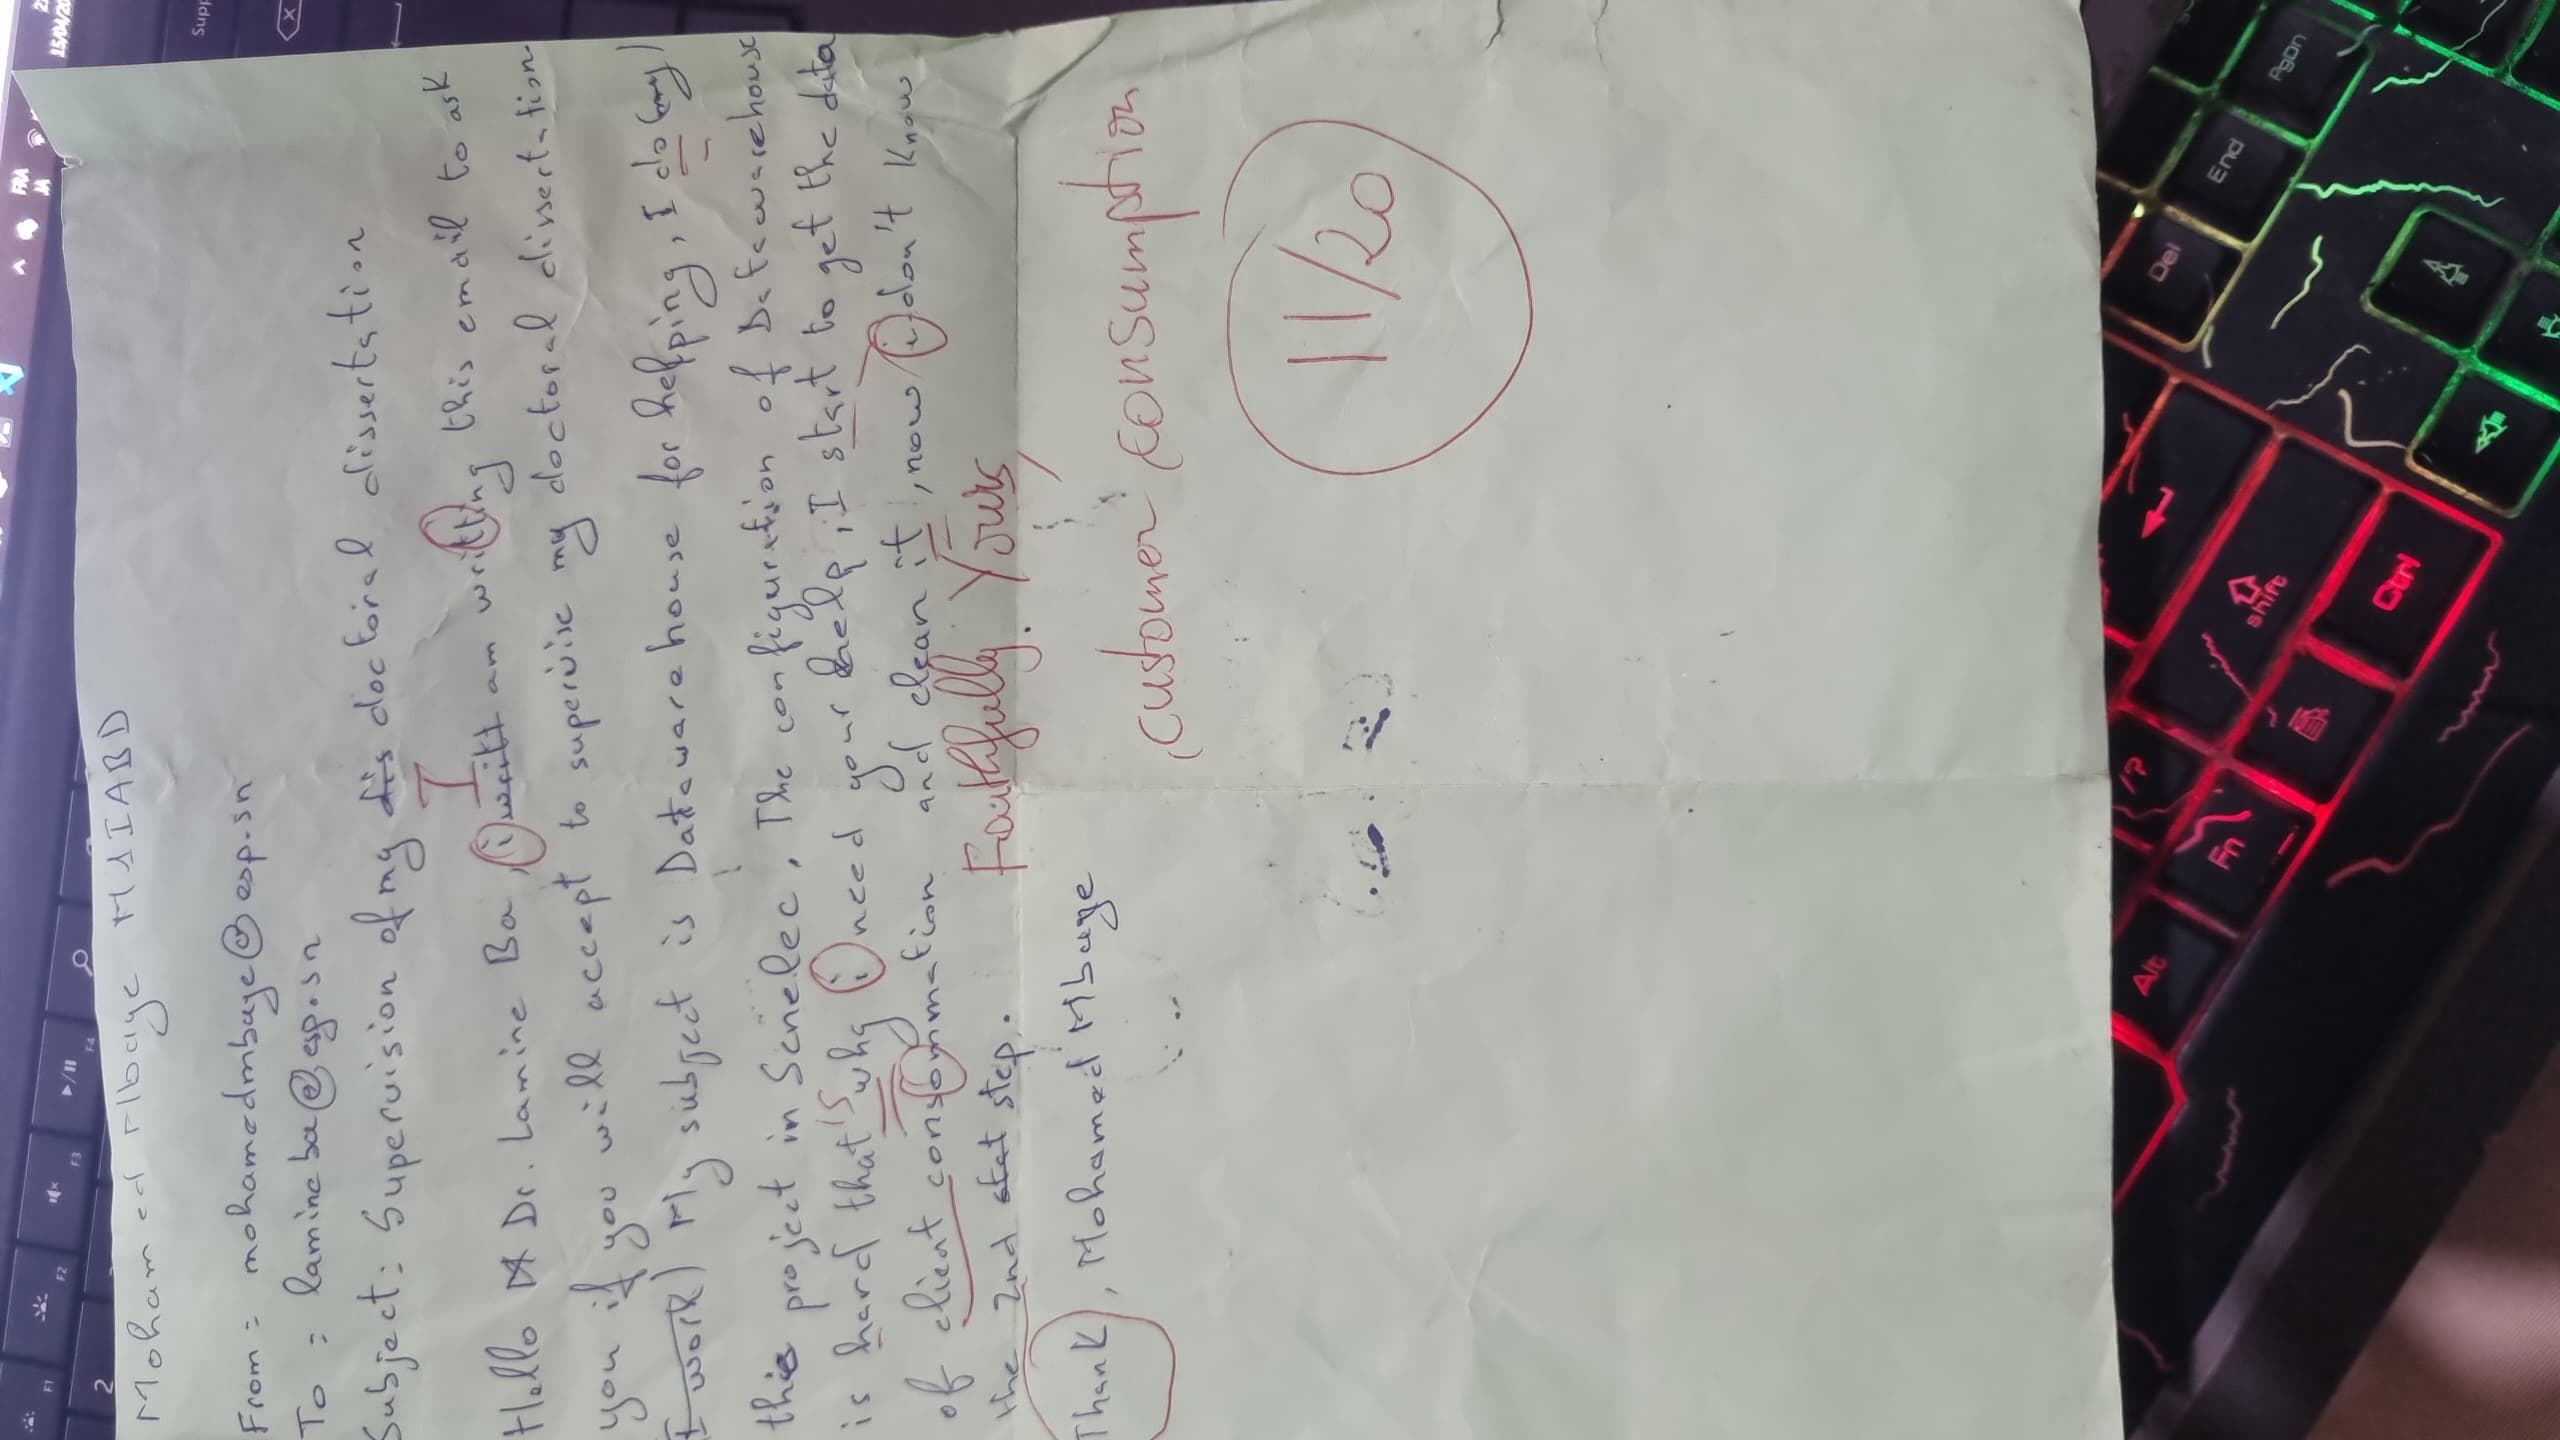 F1
F2
F3
F4
2
FRA
JA
15/04/20
Supp
Mohamed Mbaye M1IABD
From : mohamedmbaye@esp.sn
To : lamine ba@esp.sn
Subject: Supervision of my dis doctoral dissertation
I
Hello M Dr. Lamine Ba, i writt am writting this email to ask
you if you will accept to supervise my doctoral dissertation.
I work) My subject is Datawarehouse for helping, I do (my)
this project in Senelec. The configuration of Datawarehouse
is hard that's why i need your help, I start to get the data
of client consommation and clean it, now i don't know
the 2nd stat step.
Faithfully Yours,
Thank, Mohamed Mbaye
customer consumption
11/20
Alt
/?
Fn
shift
Ctrl
Del
End
PgDn